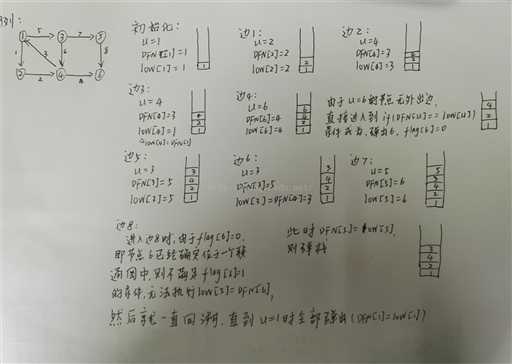 例:
初始化:
u=1
DFN[1]=1
low[1]=1
边1:
u=2
DFN[2]=2
low[2]=2
边2:
u=4
DFN[4]=3
low[4]=3
边3:
u=4
DFN[4]=3
low[4]=1
边4:
u=6
DFN[6]=4
low[6]=4
由于u=6的节点无外出边,
直接进入到if(DFN[u]==low[u])
条件成立,弹出6, flag[6]=0
边5:
u=3
DFN[3]=5
low[3]=5
边6:
u=3
DFN[3]=5
low[3]=DFN[4]=3
边7:
u=5
DFN[5]=6
low[5]=6
边8:
进入边8时,由于flag[6]=0,
即节点6已经确定位于一个强
连通图中,则不满足flag[6]=1
的条件,无法执行low[5]=DFN[6],
此时DFN[5]=low[5],
则弹栈
然后就一直回溯,直到u=1时全部弹出(DFN[1]=low[1])